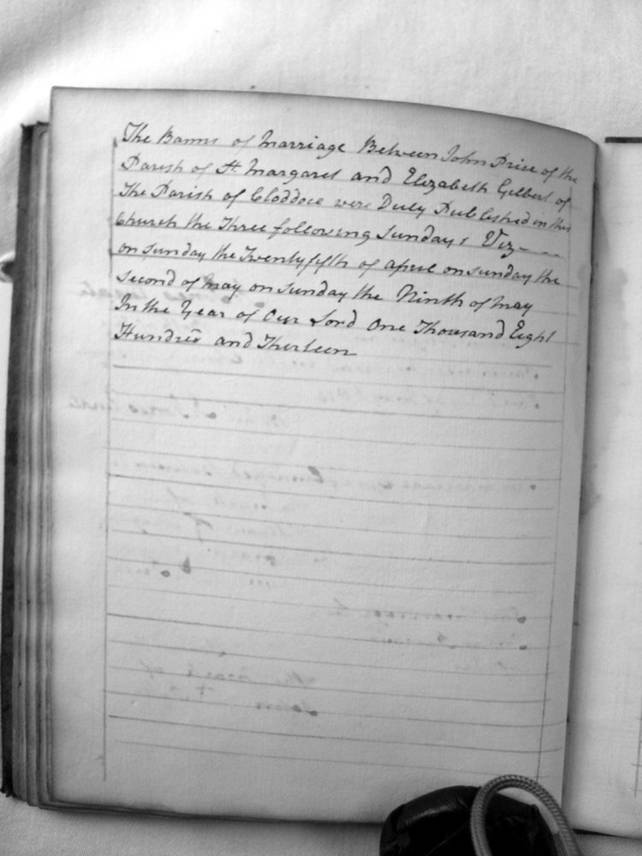 The Banns of Marriage Between John Price of the
Parish of St Margaret and Elizabeth Gilbert of
The Parish of Cloddock were Duly Published in this
Church the Three following Sundays Viz
on Sunday the Twentyfifth of April on Sunday the
Second of May on Sunday the Ninth of May
In the Year of Our Lord One Thousand Eight
Hundred and Thirteen